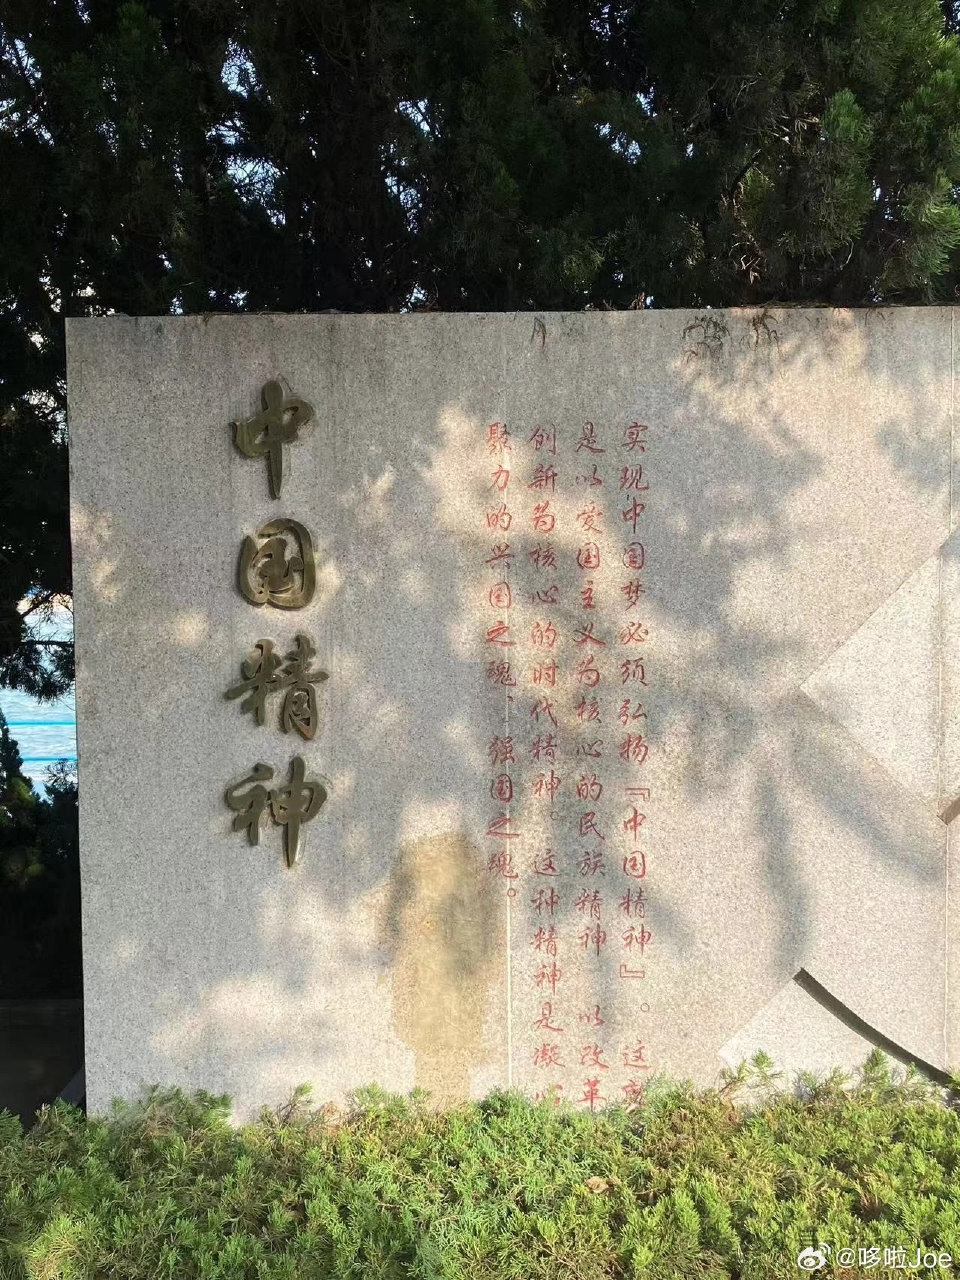 中国精神
实现中国梦必须弘扬『中国精神』。这
是以爱国主义为核心的民族精神 以改革
创新为核心的时代精神。这种精神是凝心
聚力的兴国之魂、强国之魂。
@哆啦Joe